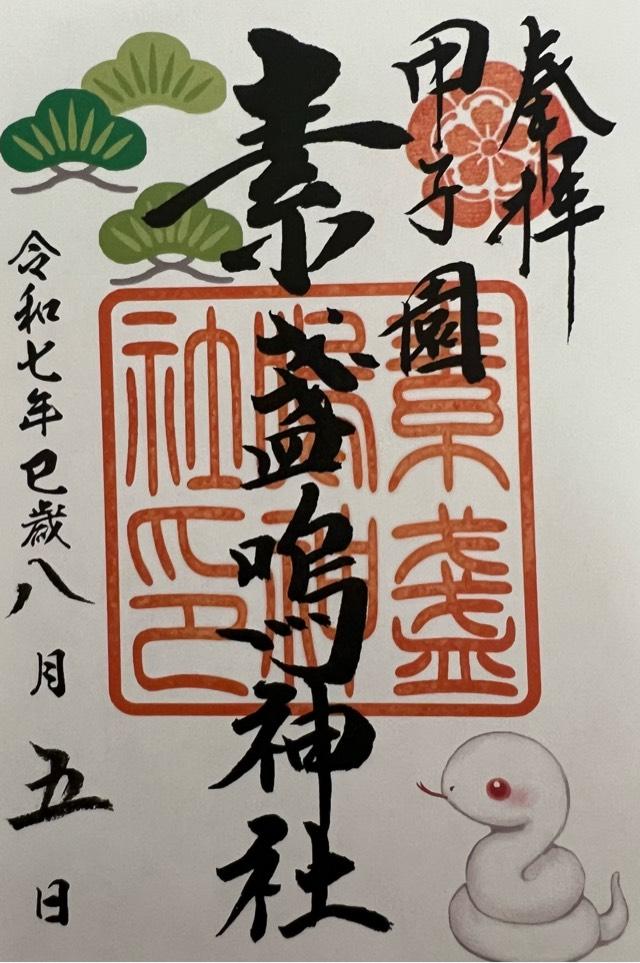 奉拝
甲子園
素盞嗚神社
令和七年巳歳八月五日
素盞
嗚神
社印